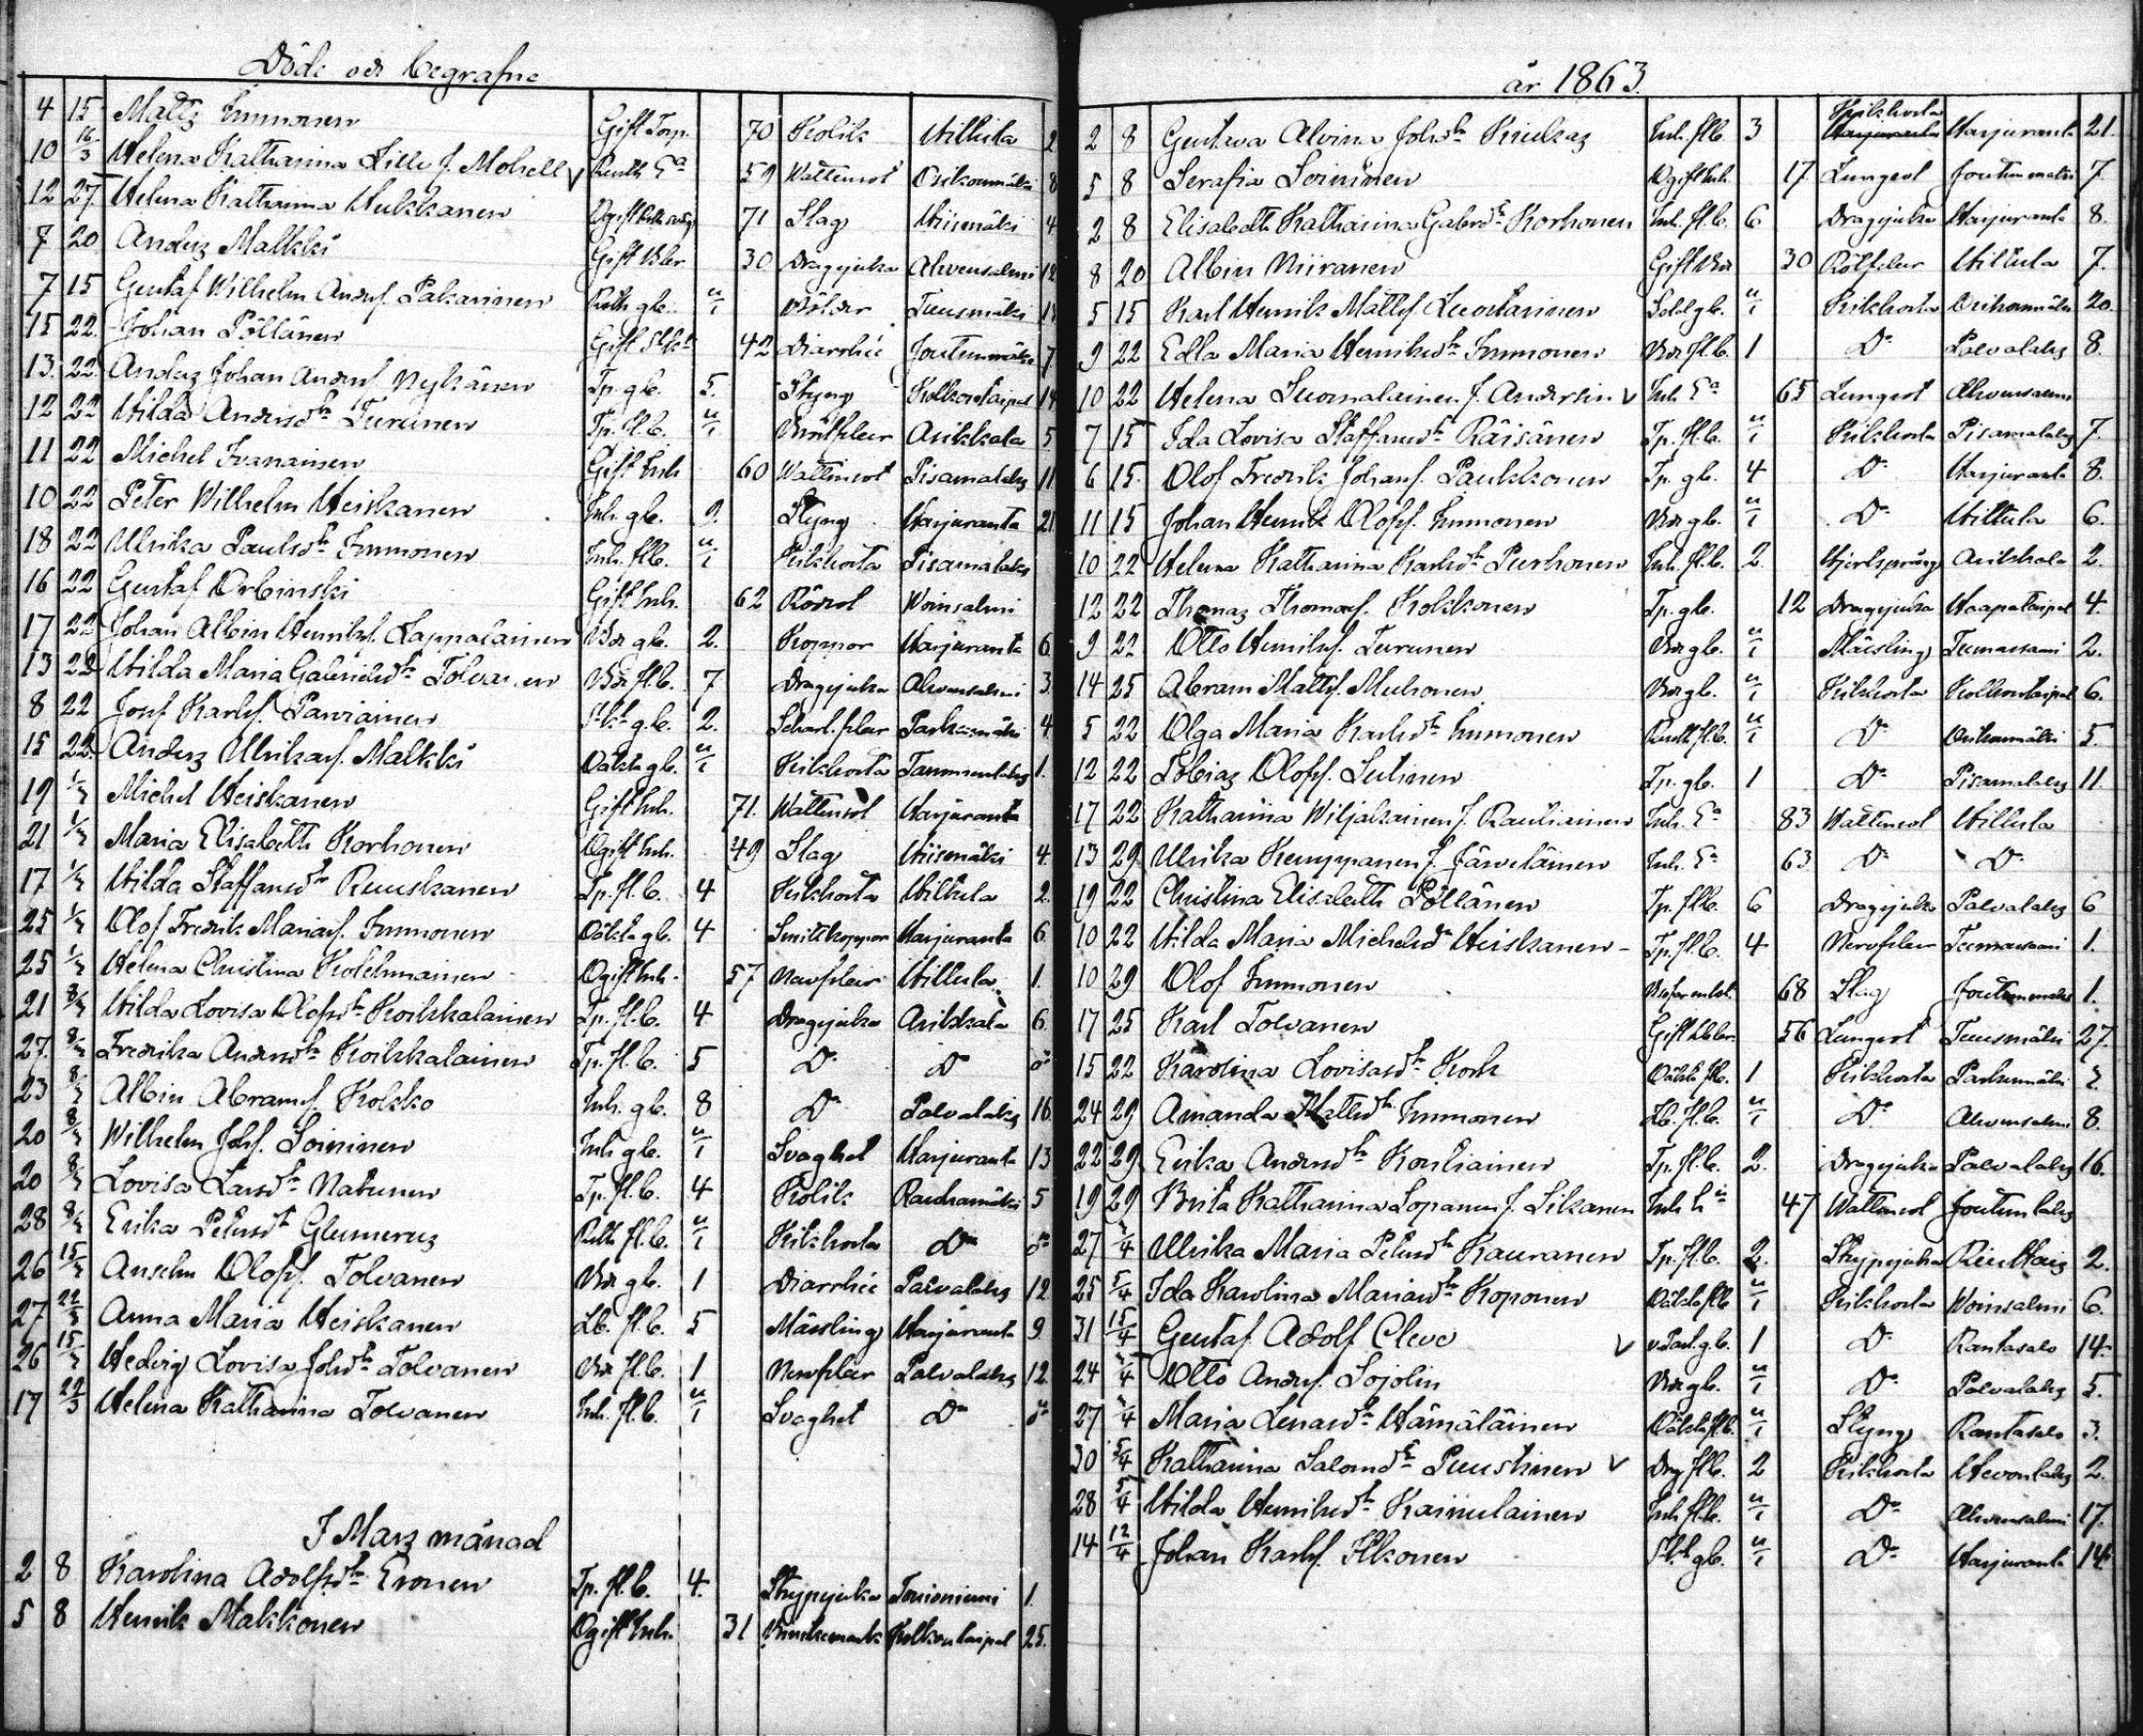 Döde och begrafne
4 15 Matts Immonen Gift Torp. 70 Kolik Hiltula 2
10 16/3 Helena Katharina Lille f. Mohell Enk. 59 Wattensot Osikonmäki 8
12 27 Helena Katharina Hukkanen Ogift 71 Slag Hiismäki 4
7 20 Anders Malkki Gift Bder 30 Dragsjuka Ahvensalmi 12
7 15 Gustaf Wilhelm Andrs. Pakarinen gb. u/1 Tuusmäki
15 22 Johan Pöllänen Gift 42 Diarrhée Joutenmäki 7
13 22 Anders Johan Andrs. Nykänen Tp. gb. 5. Styng Kolkontaipal 14
12 22 Hilda Andersdtr Turunen Tp. fl.b. u/1 Asikkala 5.
11 22 Michel Ivanainen Gift Inh 60 Wattusot Pisamalaks 11
10 22 Peter Wilhelm Heiskanen Inh. gb. 9. Styng Harjuranta 21
18 22 Ulrika Paulsdtr Immonen Inh. flb. u/1 Kikhosta Pisamalaks
16 22 Gustaf Orbinski Gift Inh. 62 Rödsot Woinsalmi
17 22 Johan Albin Henriks. Lappalainen Bdr gb. 2. Koppor Harjuranta 6
13 22 Hilda Maria Gabrielsdtr Tolvanen Bdr fl.b. 7 Dragsjuka Ahvensalmi 3
8 22 Josef Karls. Parviainen gb. 2. Scharl.feber Parkumäki 4
15 22. Anders Ulrikas. Malkki Oäkta gb. u/1 Kikhosta Tammenlaks 1.
19 1/3 Michel Heiskanen Gift Inh. 71. Wattensot Harjuranta
21 1/3 Maria Elisabeth Korhonen Ogift Inh. 49 Slag Hiismäki 4.
17 1/3 Hilda Staffansdtr Ruuskanen Tp. fl.b. 4 Kikhosta Hiltula 2.
25 1/3 Olof Fredrik Marias. Immonen Oäkta gb. 4 Smittkoppor Harjuranta 6
25 1/3 Helena Christina Kolehmainen Ogift Inh. 57 Nervfeber Hiltula 1.
21 8/3 Hilda Lovisa Olofsdtr Koikkalainen Tp. fl.b. 4 Dragsjuka Asikkala 6
27. 8/3 Fredrika Andersdtr Koikkalainen Tp. fl.b. 5 Do Do do
23 8/3 Albin Abrams. Kokko Inh. gb. 8 Do Palvalaks 16
20 8/3 Wilhelm Johs. Soininen Inh gb. u/1 Svaghet Harjuranta 13
20 8/3 Lovisa Larsdtr Natunen Tp. fl.b. 4 Kolik Rauhamäki 5
28 8/3 Erika Petersdtr Glumerus fl.b. u/1 Kikhosta Do do
26 15/3 Anselm Olofs. Tolvanen Bdr gb. 1 Diarrhée Palvalaks 12
27 22/3 Anna Maria Heiskanen Lb. fl.b. 5 Mässling Harjuranta 9
26 15/3 Hedvig Lovisa Johsdtr Tolvanen Bdr fl.b. 1 Nervfeber Palvalaks 12
17 22/3 Helena Katharina Tolvanen Inh. fl.b. u/1 Svaghet Do do
I Mars månad
2 8 Karolina Adolfsdtr Eronen Tp. fl.b. 4. Strypsjuka Toroniemi 1
5 8 Henrik Makkonen Ogift Inh. 31 Kolkontaipal 25.
år 1863.
2 8 Gustava Alvina Johsdtr Kiukas Inh. flb. 3 Kikhosta Harjuranta 21.
5 8 Serafia Soininen Ogift Inh. 17. Lungsot Joutenmäki 7
2 8 Elisabeth Katharina Gabrsdtr Korhonen Inh. fl.b. 6 Dragsjuka Harjuranta 8.
8 20 Albin Niiranen Gift Bdr 30 Rötfeber Hiltula 7.
5 15 Karl Henrik Matts. Luostarinen Sold gb. u/1 Kikhosta Osikonmäki 20.
9 22 Edla Maria Henriksdtr Immonen Bdr fl.b. 1 Do Palvalaks 8.
10 22 Helena Suomalainen f. Andersin Inh. Ea 65 Lungsot Ahvensalmi
7 15 Ida Lovisa Staffansdtr Räisänen Tp. fl.b. u/1 Kikhosta Pisamalaks 7.
6 15 Olof Fredrik Johans. Paukkonen Tp. gb. 4 Do Harjuranta 8.
11 15 Johan Henrik Olofs. Immonen Bdr gb. u/1 Do Hiltula 6.
10 22 Helena Katharina Karlsdtr Purhonen Inh. fl.b. 2. Hjertsprång Asikkala 2.
12 22 Thomas Thomas. Kokkonen Tp. gb. 12 Dragsjuka Haapataipal 4.
9 22 Otto Henriks. Turunen Bdr gb. u/1 Mässling Teemassaari 2.
14 25 Abram Matts. Muhonen Bdr gb. u/1 Kikhosta Kolkontaipal 6.
5 22 Olga Maria Karlsdtr Immonen fl.b. u/1 Do Osikonmäki 5.
12 22 Tobias Olofs. Sutinen Tp. gb. 1 Do Pisamalaks 11.
17 22 Katharina Wiljakainen f. Rauliainen Inh. Ea 83 Wattusot Hiltula
13 29 Ulrika Kemppanen f. Järveläinen Inh. Ea 63 Do Do
19 22 Christina Elisabeth Pöllänen Tp. flb. 6 Dragsjuka Palvalaks 6
10 22 Hilda Maria Michelsdtr Heiskanen Tp. fl.b. 4 Nervfeber Teemassaari 1.
10 29 Olof Immonen 68 Slag Joutenmäki 1.
17 25 Karl Tolvanen Gift 56 Lungsot Tuusmäki 27.
15 22 Karolina Lovisasdtr Kork Oäkta flb. 1 Kikhosta Parkumäki 2.
24 29 Amanda Mattsdtr Immonen Lb. fl.b. u/1 Do Ahvensalmi 8.
22 29 Erika Andersdtr Kouliainen Tp. fl.b. 2. Dragsjuka Palvalaks 16.
19 29 Brita Katharina Sopanen f. Silkanen Inh 47 Wattusot Joutenlaks
27 4 Ulrika Maria Petersdtr Kauranen Tp. fl.b. 2. Strypsjuka 2.
25 5/4 Ida Karolina Mariasdtr Koponen Oäkta flb u/1 Kikhosta Woinsalmi 6.
31 15/4 Gustaf Adolf Cleve v.Past. gb. 1 Do Rantasalo 14.
24 4 Otto Andrs. Sojolin Bdr gb. u/1 Do Palvalaks 5.
27 4 Maria Lenasdtr Hämäläinen Oäkta fl.b. u/1 Styng Rantasalo 3.
30 5/4 Katharina Salomsdtr Puustinen Drg fl.b. 2 Kikhosta Hevonlaks 2.
28 5/4 Hilda Henriksdtr Kainulainen Inh fl.b. u/1 Do Ahvensalmi 17.
14 12/4 Johan Karls. Ilkonen gb. u/1 Do Harjuranta 14.